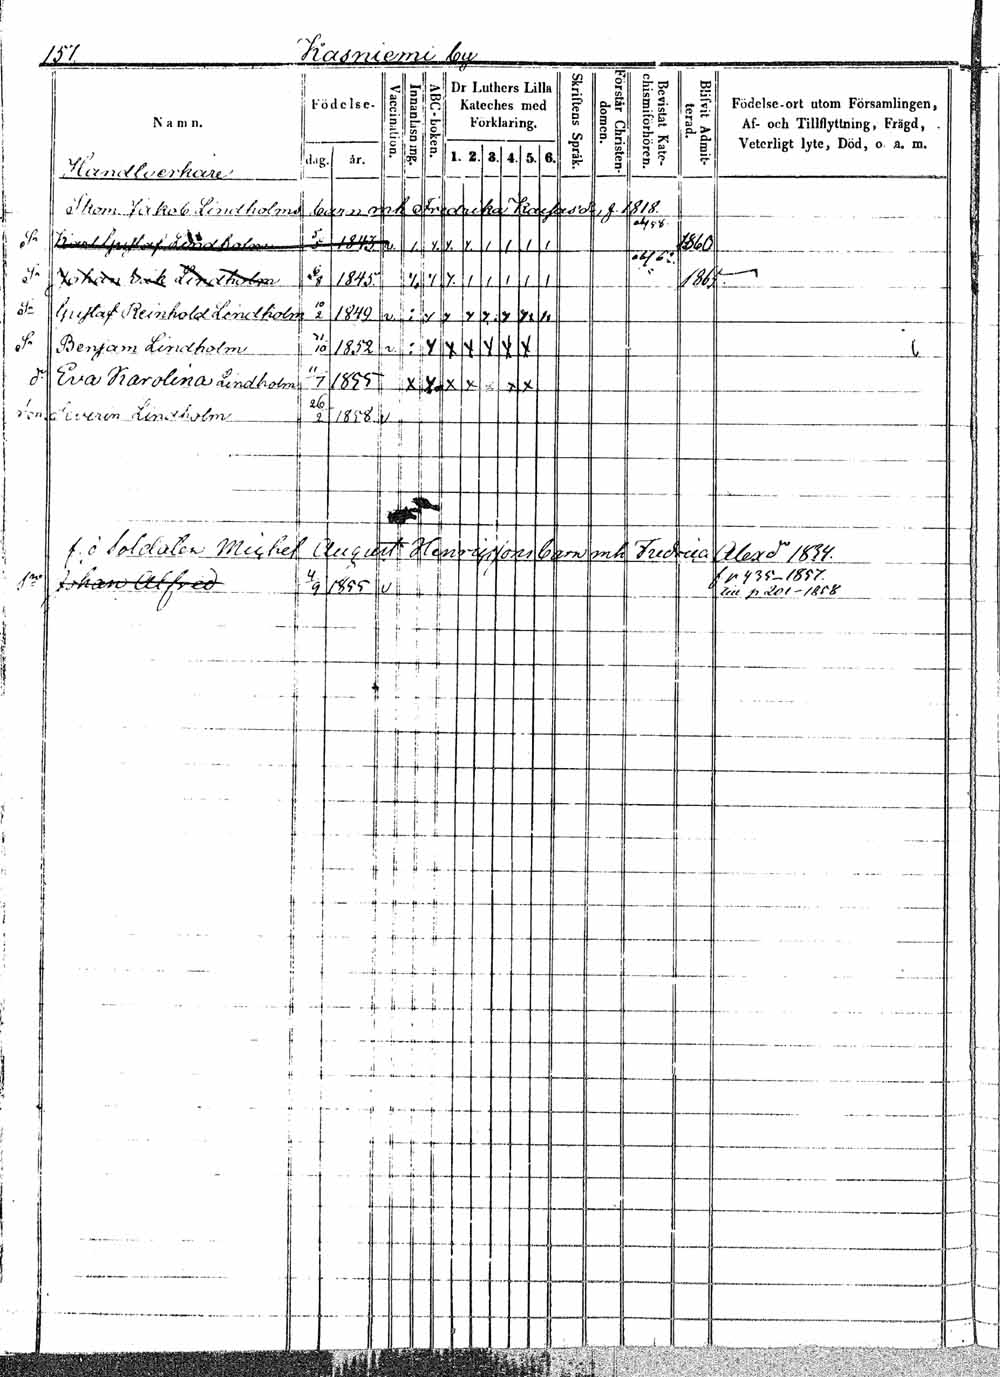 151. Kasniemi by
Namn.
Födelse-
dag. år.
Vaccination.
Innanläsning.
ABC-boken.
Dr Luthers Lilla
Kateches med
Förklaring.
1. 2. 3. 4. 5. 6.
Skriftens Språk.
Förstår Christen-
domen.
Bevistat Kate-
chismiförhören.
Blifvit Admit-
terad.
Födelse-ort utom Församlingen,
Af- och Tillflyttning, Frägd,
Veterligt lyte, Död, o. a. m.
Handtverkare
Skom. Jakob Lindholms barn mh Fredrika f. 1818.
Sn Karl Gustaf Lindholm 5/5 1843 v 1860
Sn Johan Erik Lindholm 1845 1865
Sn Gustaf Reinhold Lindholm 10/2 1849 v
Sn Benjam Lindholm 21/10 1852 v
dr Eva Karolina Lindholm 11/7 1855 x x x x x x x
son Severin Lindholm 26/2 1858 v
f. d Soldaten Michel August Henrikssons barn mh Fredrica Alexdr 1834.
Sn Johan Alfred 4/9 1855 v f p 435-1857.
p 201-1858